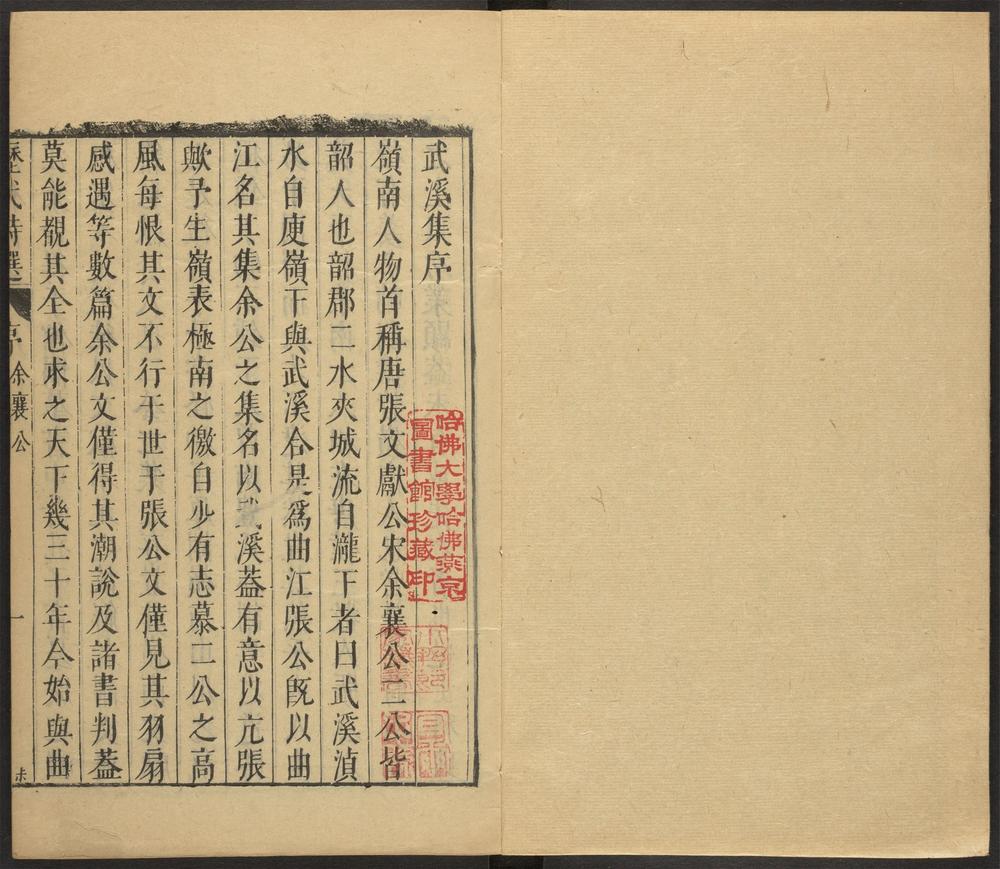 武溪集序
嶺南人物首稱唐張文獻公宋余襄公二公皆
韶人也韶郡二水夾城流自瀧下者曰武溪湞
水自庾嶺下與武溪合是爲曲江張公旣以曲
江名其集余公之集名以武溪葢有意以亢張
歟予生嶺表極南之徼自少有志慕二公之高
風每恨其文不行于世于張公文僅見其羽扇
感遇等數篇余公文僅得其潮說及諸書判葢
莫能覩其全也求之天下幾三十年今始與曲
歷代詩選
序
余襄公
一
哈佛大學哈佛燕京
圖書館珍藏印